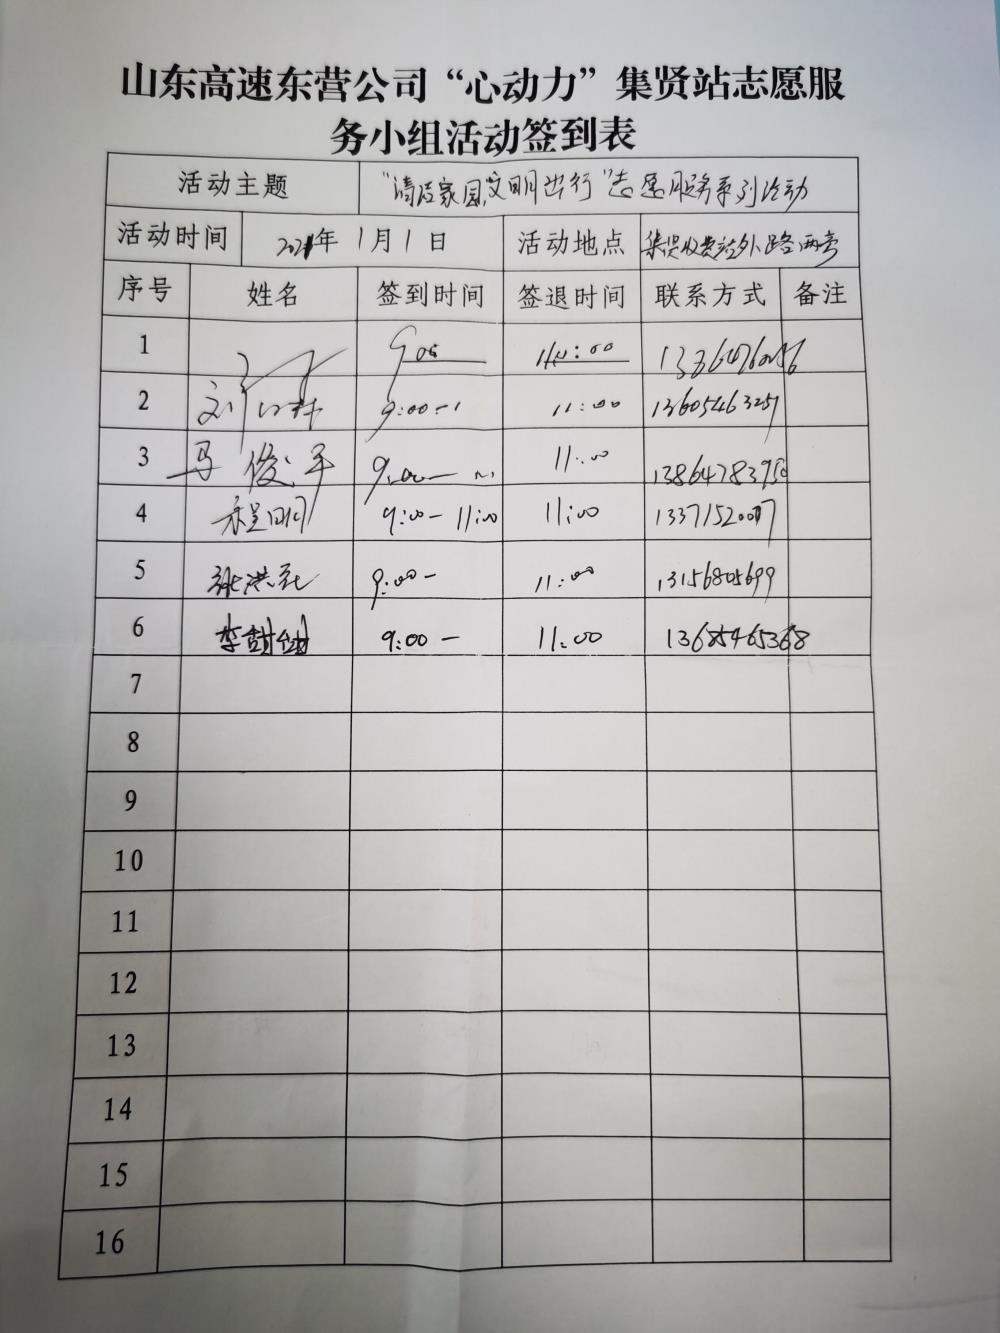 山东高速东营公司“心动力”集贤站志愿服
务小组活动签到表
活动主题 “清洁家园,文明出行”志愿服务系列活动
活动时间 2021年 1月1日 活动地点 集贤收费站外路两旁
序号 姓名 签到时间 签退时间 联系方式 备注
1 11:00
2 9:00 11:00 13605463251
3 马俊平 9:00 11:00
4 9:00-11:00 11:00
5 9:00- 11:00 13156805699
6 李甜甜 9:00- 11:00
7
8
9
10
11
12
13
14
15
16